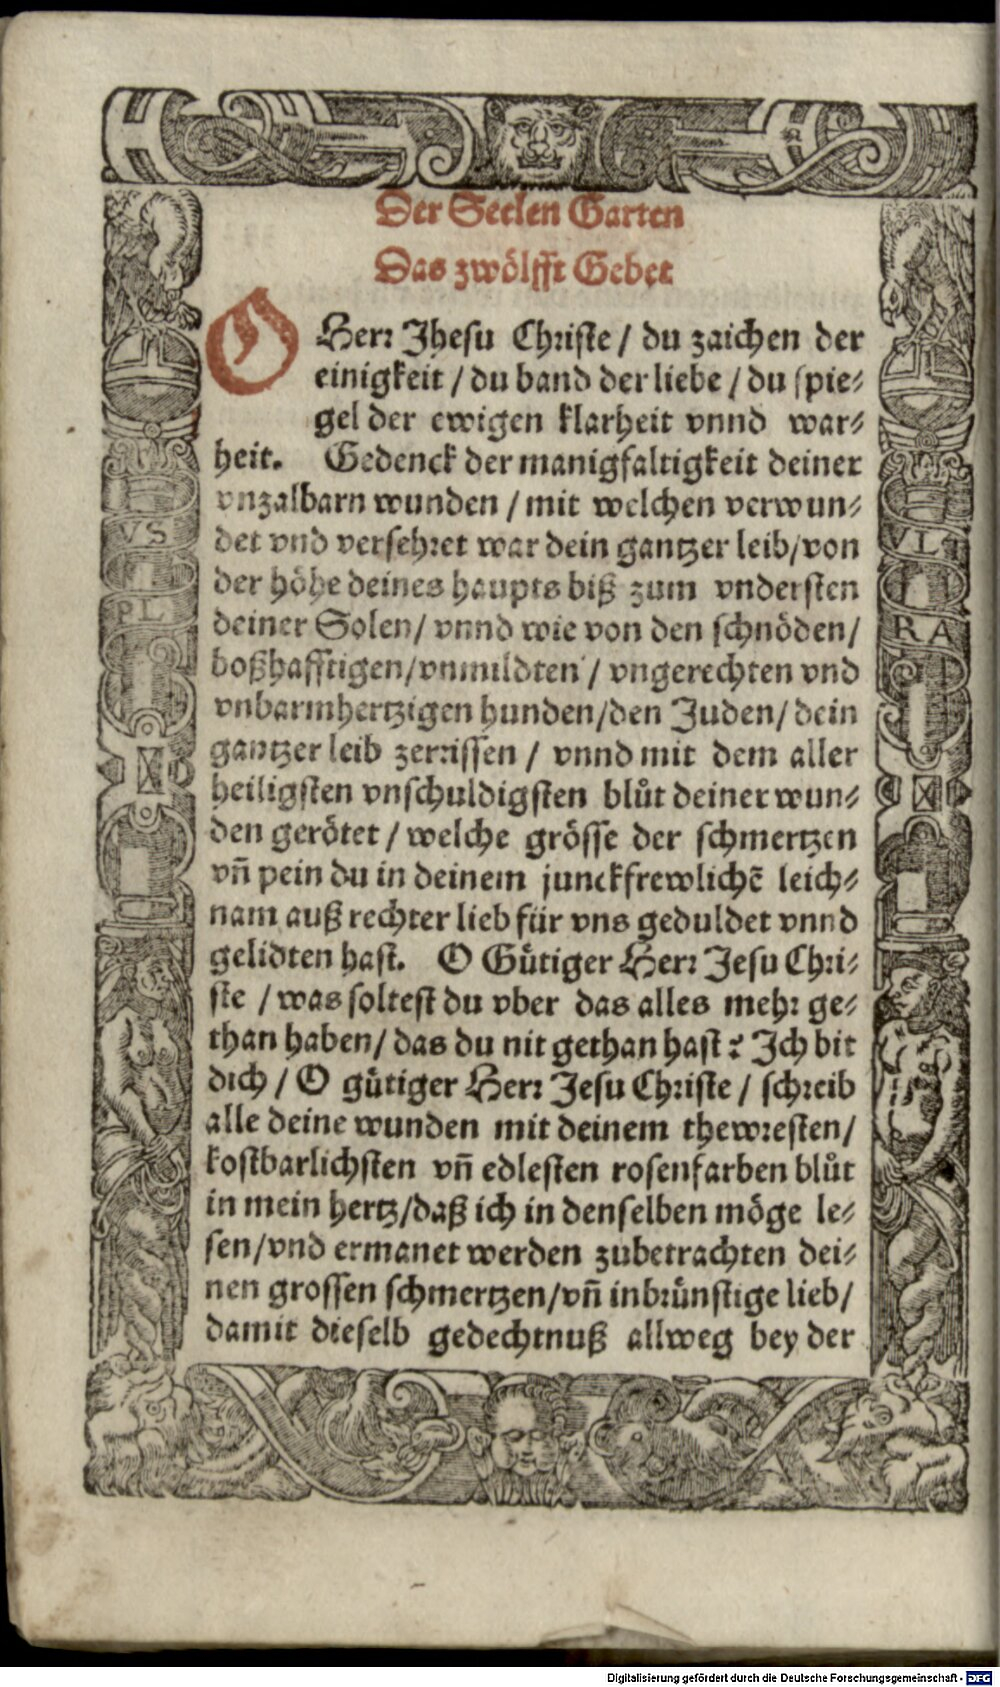 Der Seelen Garten
Das zwölfft Gebet
O Herr Jhesu Christe / du zaichen der
einigkeit / du band der liebe / du spie⸗
gel der ewigen klarheit vnnd war⸗
heit. Gedenck der manigfaltigkeit deiner
vnzalbarn wunden / mit welchen verwun⸗
det vnd versehret war dein gantzer leib/von
der höhe deines haupts biß zum vndersten
deiner Solen/ vnnd wie von den schnöden/
boßhafftigen/vnmildten / vngerechten vnd
vnbarmhertzigen hunden/den Juden/ dein
gantzer leib zerrissen / vnnd mit dem aller
heiligsten vnschuldigsten blůt deiner wun⸗
den gerötet / welche grösse der schmertzen
vn̄ pein du in deinem junckfrewlichē leich⸗
nam auß rechter lieb für vns geduldet vnnd
gelidten hast. O Gütiger Herr Jesu Chri⸗
ste / was soltest du vber das alles mehr ge⸗
than haben/ das du nit gethan hast? Jch bit
dich / O gütiger Herr Jesu Christe / schreib
alle deine wunden mit deinem thewresten/
kostbarlichsten vn̄ edlesten rosenfarben blůt
in mein hertz/daß ich in denselben möge le⸗
sen/vnd ermanet werden zubetrachten dei⸗
nen grossen schmertzen/vn̄ inbrünstige lieb/
damit dieselb gedechtnuß allweg bey der
VS
PL
VL
RA
Digitalisierung gefördert durch die Deutsche Forschungsgemeinschaft - DFG